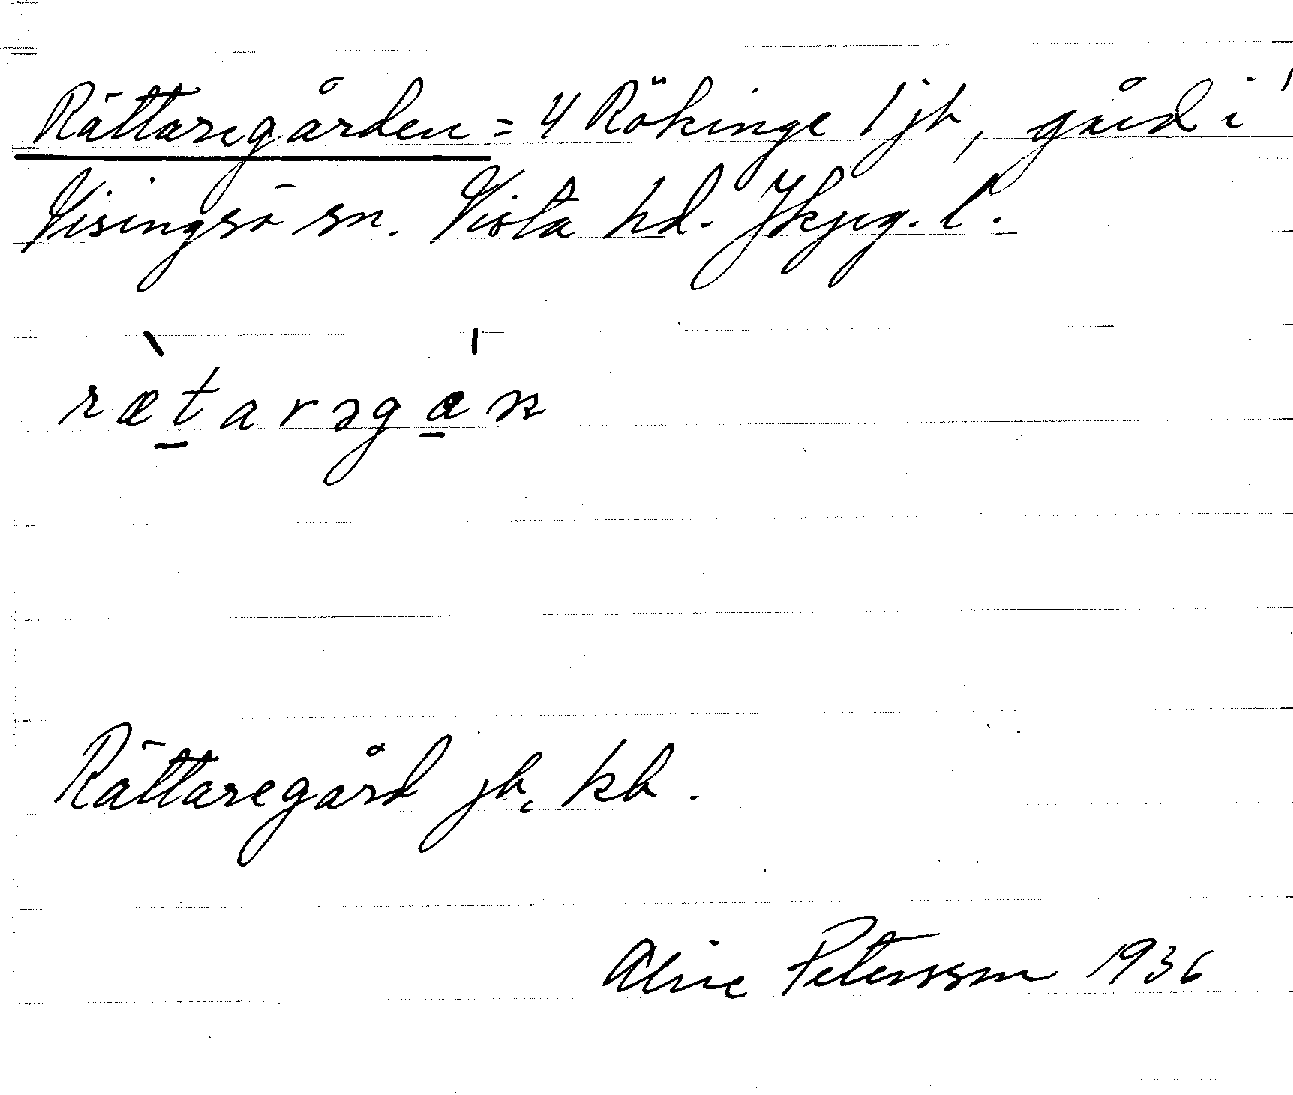 Rättaregården = 4 Rökinge 1 jb, gård i
Visingsö sn. Vista hd. Jkpg. l.
rætarəgán
Rättaregård jb, kb.
Petersson 1936